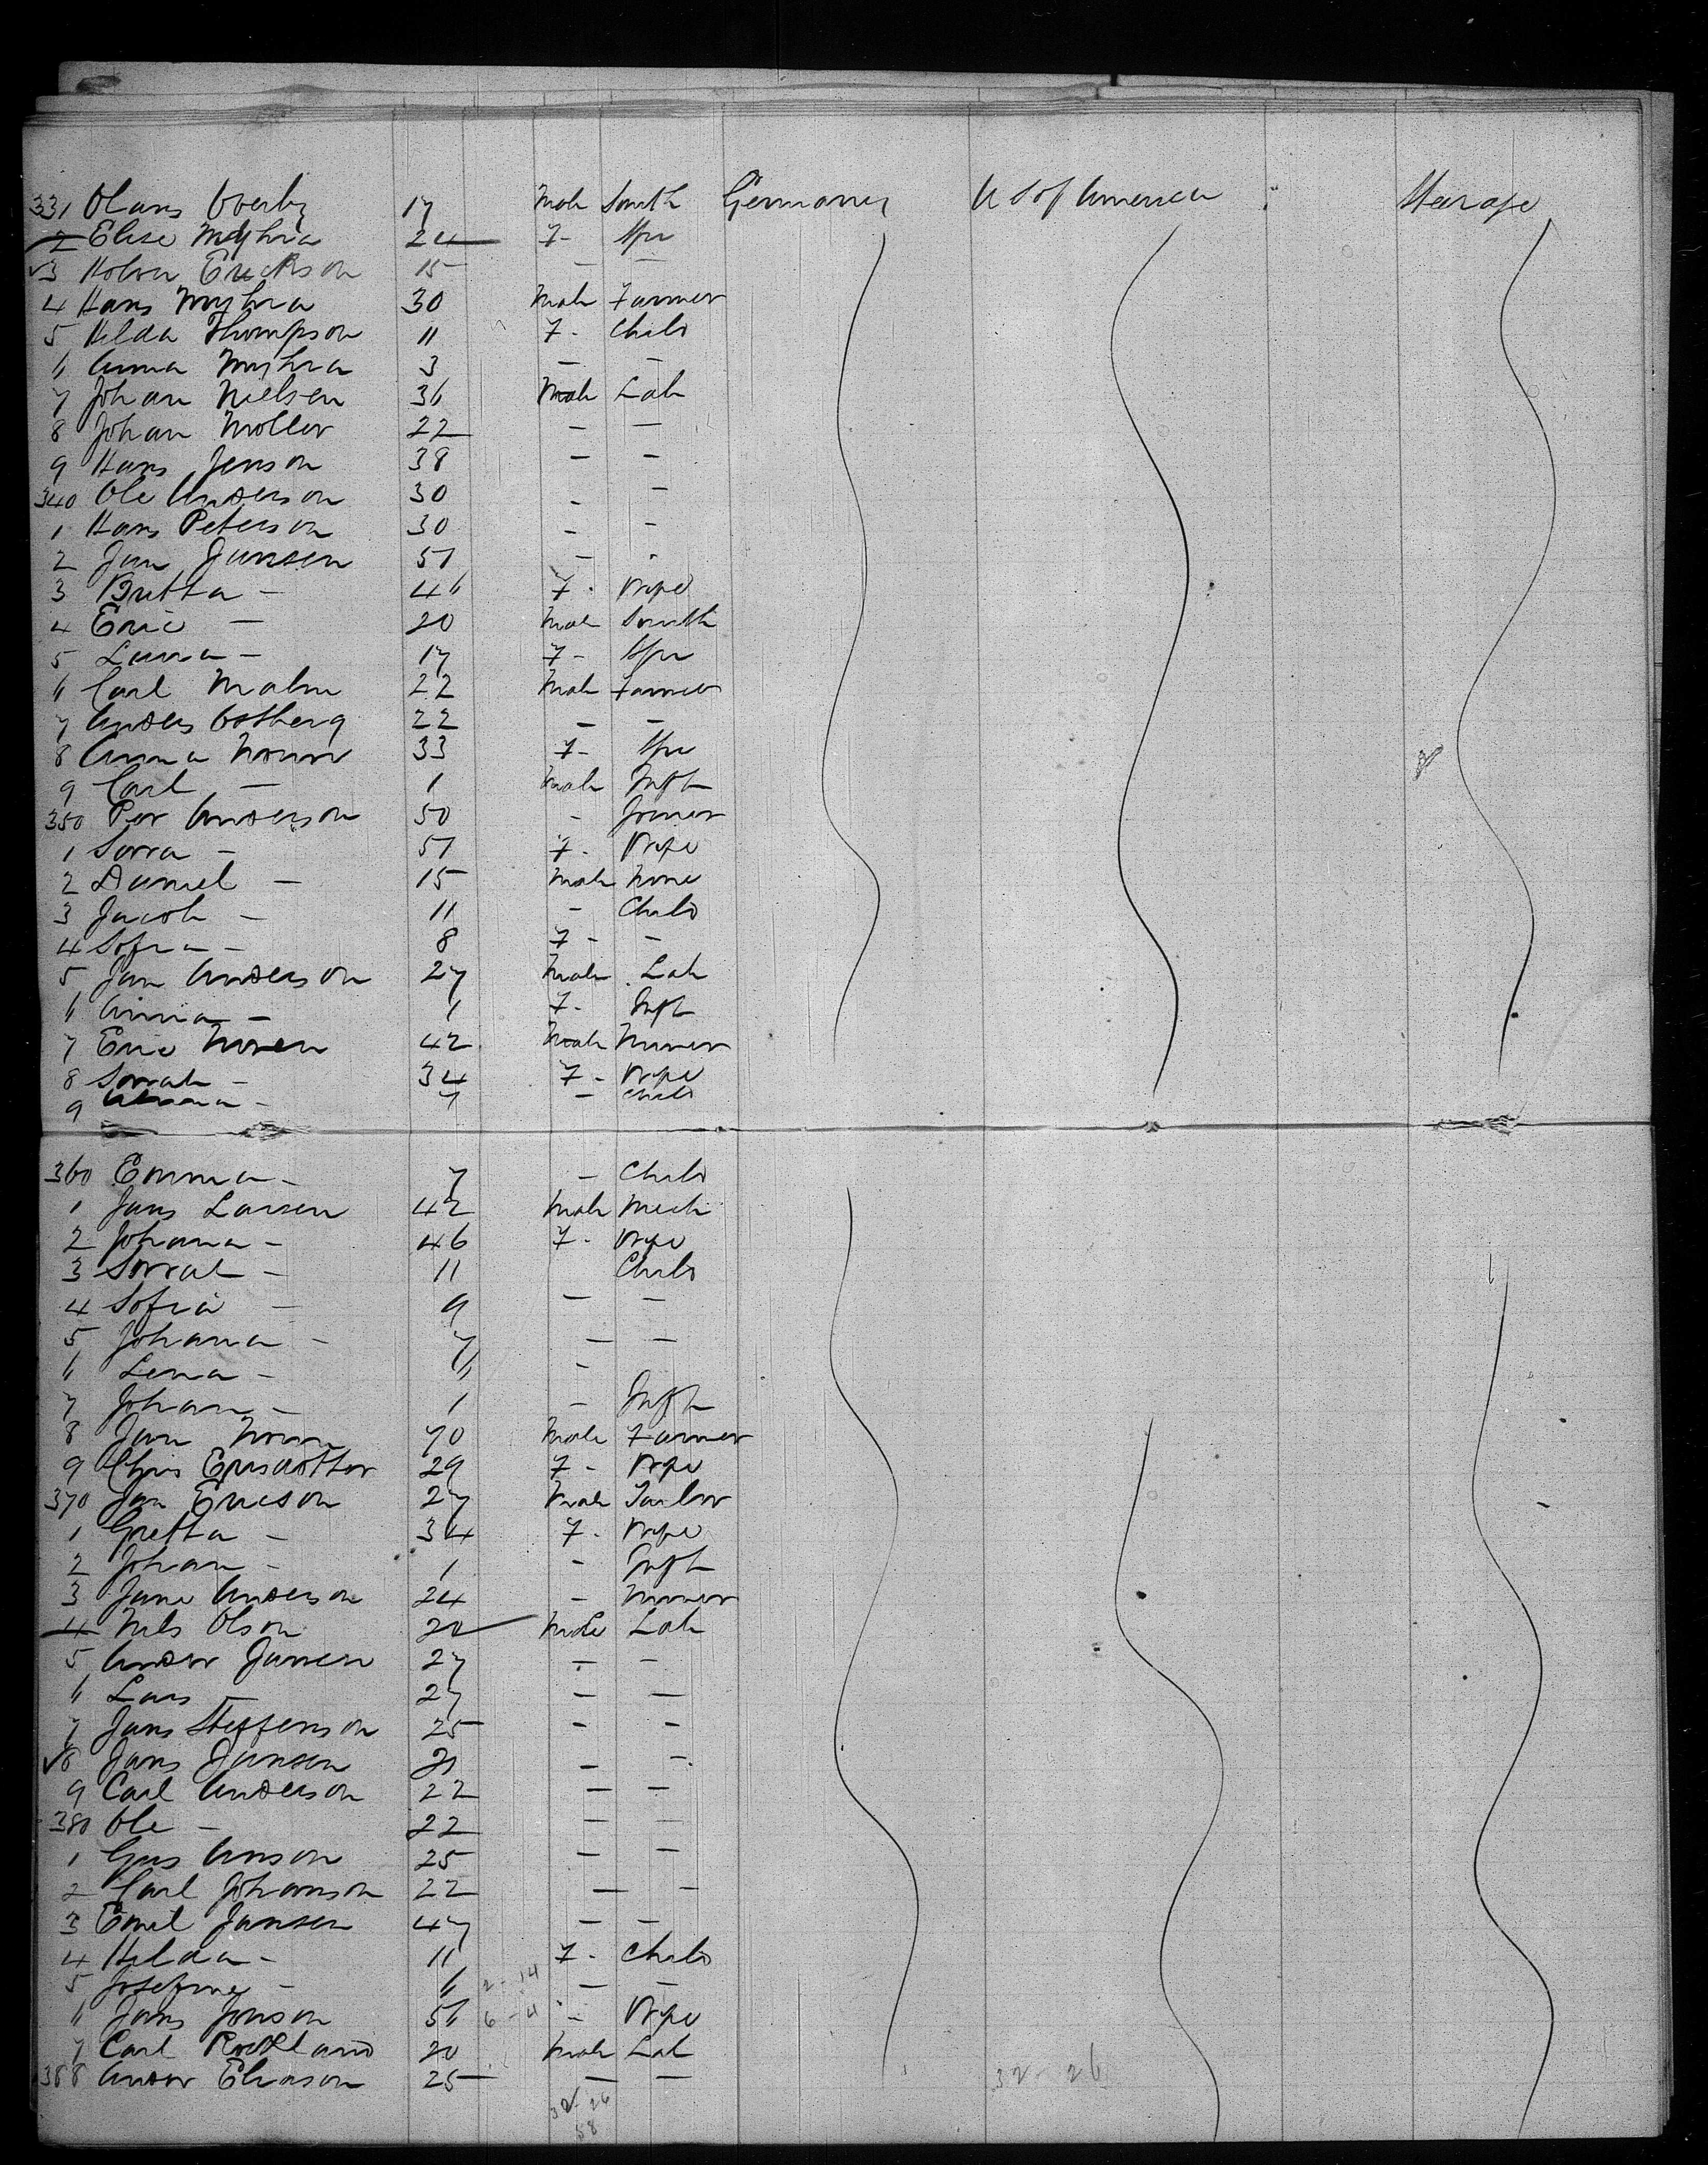 331 Olans Overby 17 Male Smith Germany U S of America Steerage
2 Elise Myhra 24 F - Spr
3 Holver Erickson 15 - -
4 Hans Myhra 30 Male Farmer
5 Hilda Thompson 11 F - Child
6 Anna Myhra 3 - -
7 Johan Nielsen 36 Male Lab
8 Johan Moller 22 - -
9 Hans Jenson 38 - -
340 Ole Anderson 30 - -
1 Hans Peterson 30 - -
2 Jan Jansen 51 - -
3 Britta - 46 F - Wife
4 Eric - 20 Male Smith
5 Laura - 17 F - Spr
6 Carl Malm 22 Male Farmer
7 Anders Ostberg 22 - -
8 Anna 33 F - Spr
9 Carl - 1 Male Inft
350 Per Anderson 50 - Joiner
1 Sarra - 51 F - Wife
2 Daniel - 15 Male None
3 Jacob - 11 - Child
4 Sofia - 8 F - -
5 Jan Anderson 27 Male Lab
6 Anna - 1 F - Inft
7 Eric Noren 42 Male Miner
8 Sarrah - 34 F - Wife
9 - 7 - Child
360 Emma - 7 - Child
1 Jans Larsen 42 Male Mech
2 Johana - 46 F - Wife
3 Sarrah - 11 Child
4 Sofia - 9 - -
5 Johana - 7 - -
6 Lena - 6 -
7 Johan - 1 - Inft
8 Jan 70 Male Farmer
9 Chris Ericsdotter 29 F - Wife
370 Jan Ericson 27 Male Tailor
1 Gretta - 34 F - Wife
2 Johan - 1 - Inft
3 Jane Anderson 24 - Miner
4 Nils Olson 20 Male Lab
5 Ander Jansen 27 - -
6 Lars - 27 - -
7 Jans Steffenson 25 - -
8 Jans Jansen 21 - -
9 Carl Anderson 22 - -
380 Ole - 22 - -
1 Gus Anson 25 - -
2 Carl Johanson 22 - -
3 Emil Jansen 47 - -
4 Hilda - 11 F - Child
5 Josefine - 6 2 - 14 - -
6 Jans Jonson 56 6 - 4 - Wife
7 Carl 20 Male Lab
388 Ander Eliason 25 - -
32 - 26 32 - 26
58